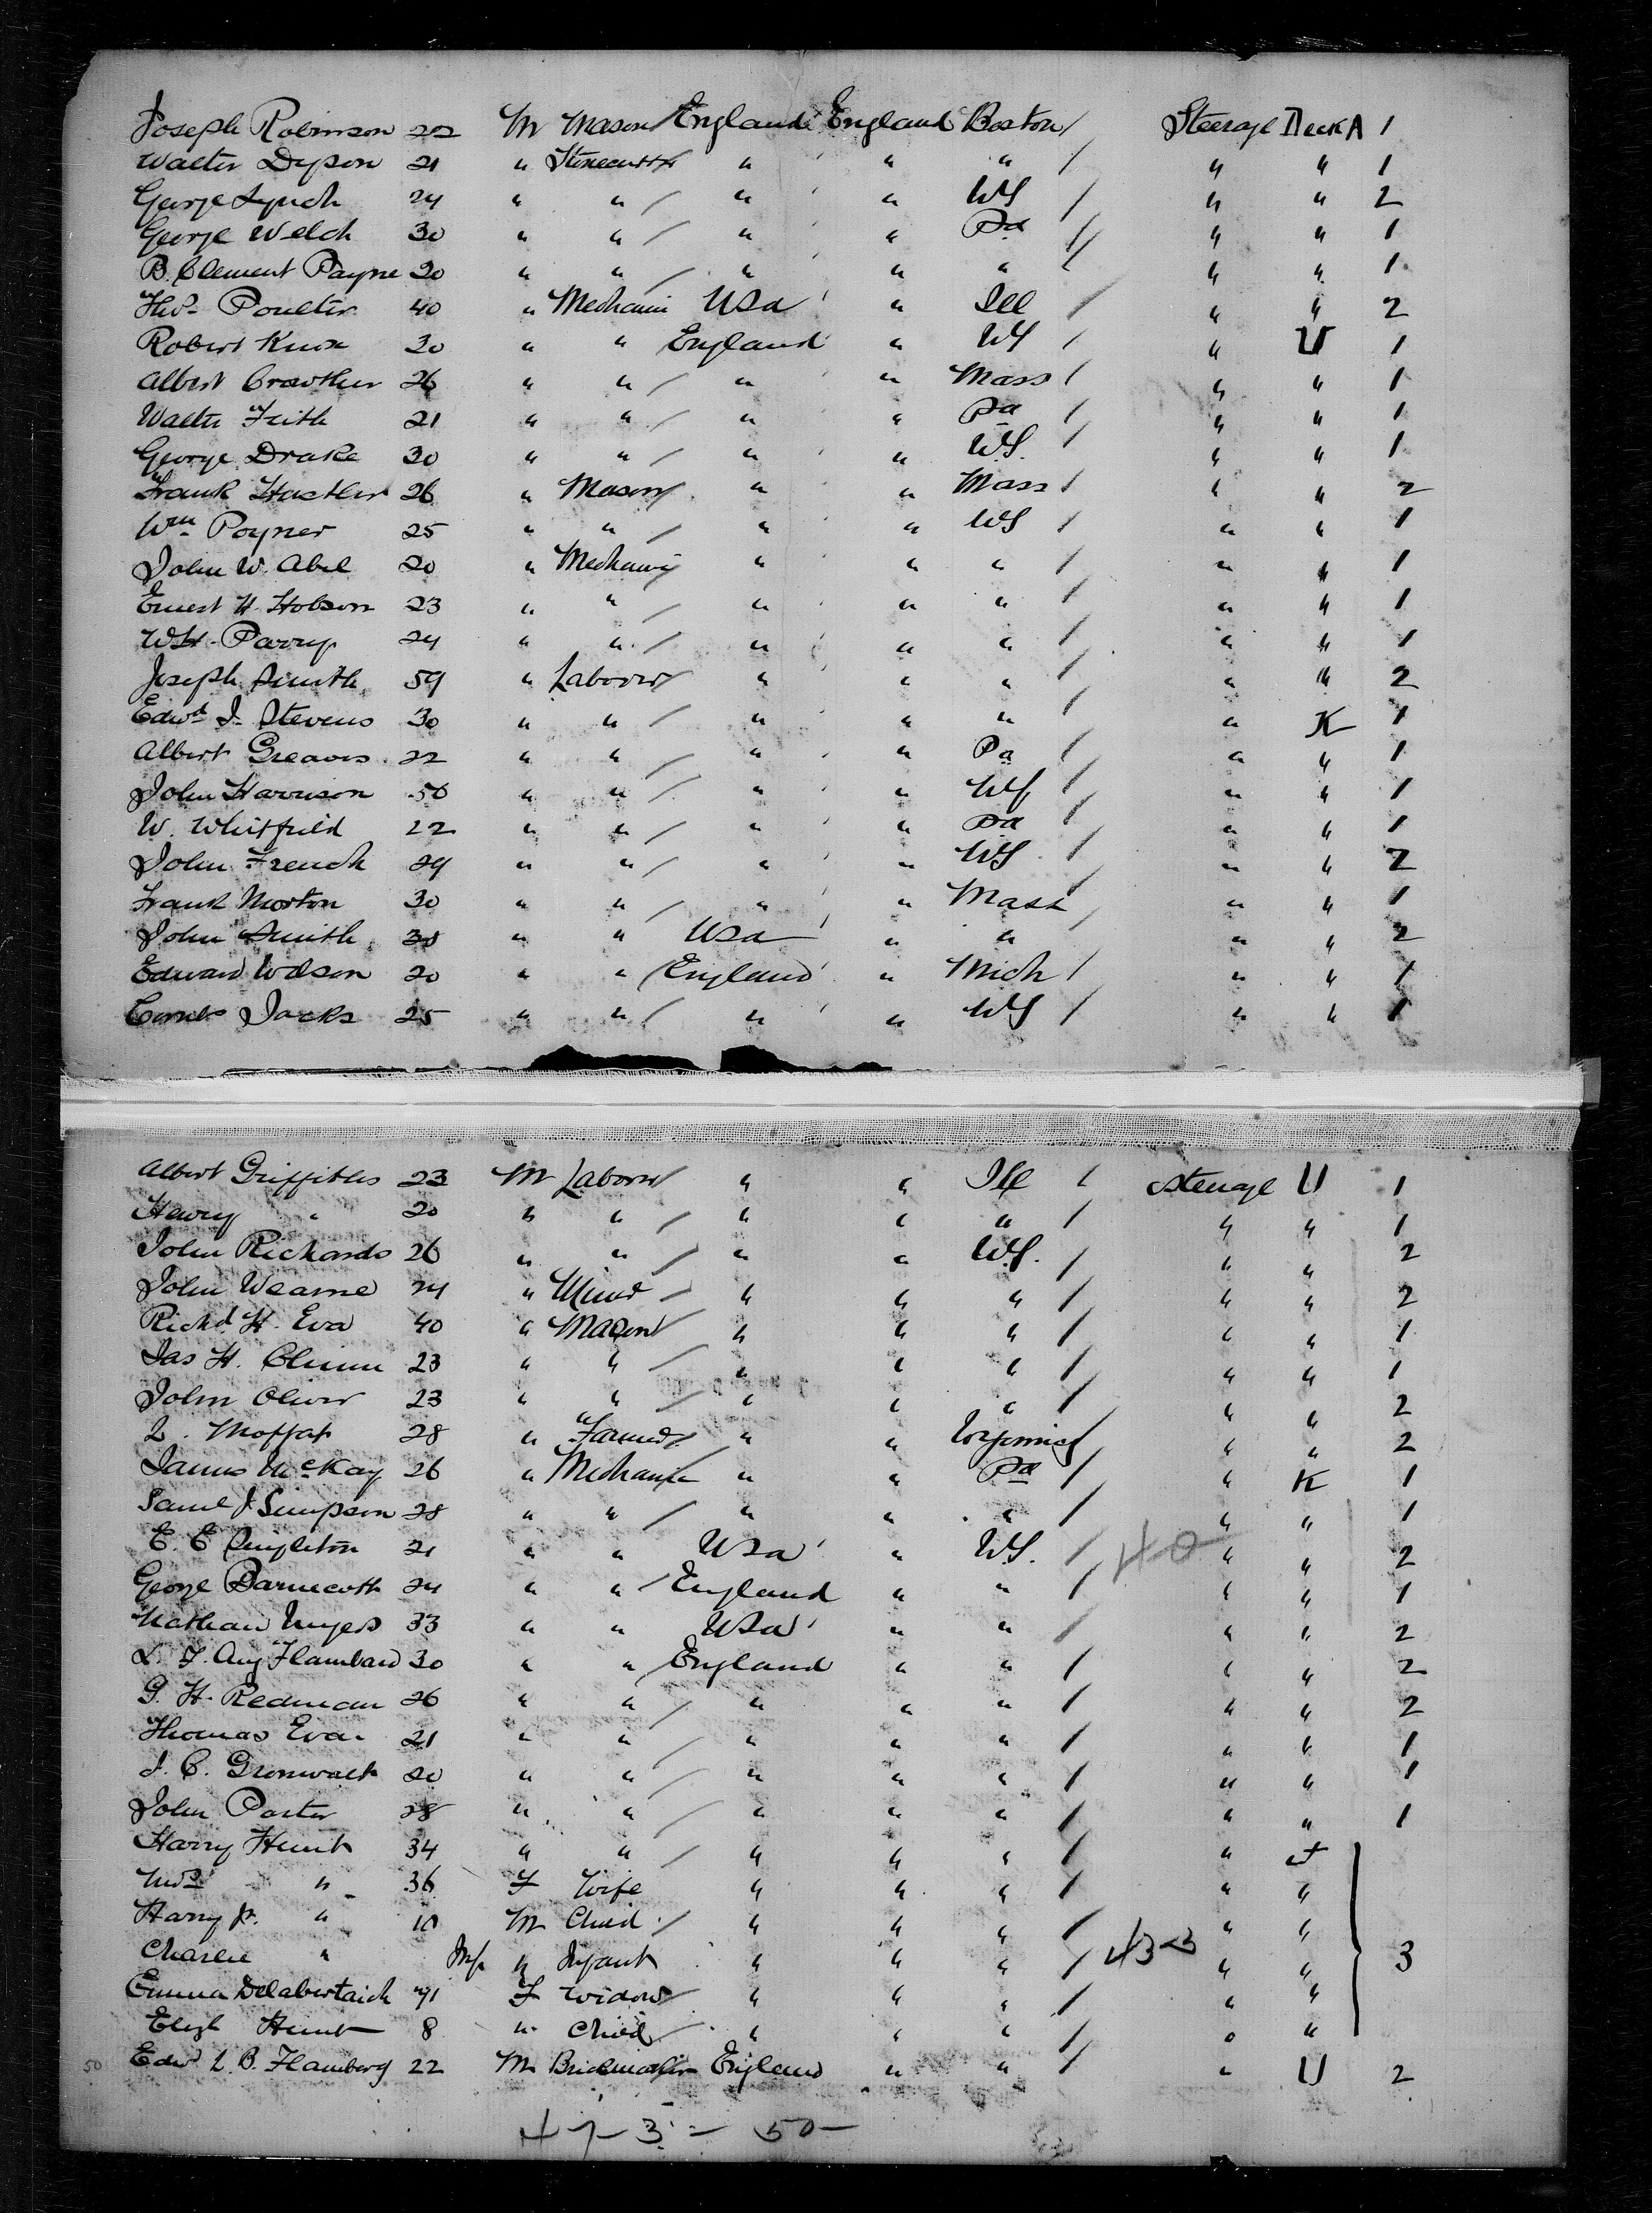 Joseph Robinson 22 M Mason England England Boston / Steerage Deck A 1
Walter Dyson 21 " Stonecutter " " " / " " 1
George Lynch 24 " " / " " NY / " " 2
George Welch 30 " " / " " Pa / " " 1
B. Clement Payne 20 " " / " " " / " " 1
Thos Poulter 40 " Mechanic USA " Ill / " " 2
Robert Knox 30 " " England " NY / " U 1
Albert Crowther 26 " " / " " Mass / " " 1
Walter Frith 21 " " / " " Pa / " " 1
George Drake 30 " " / " " N.Y. / " " 1
Frank Hastler 26 " Mason " " Mass / " " 2
Wm Poyner 25 " " / " " NY / " " 1
John W. Abel 20 " Mechanic " " " / " " 1
Ernest H. Hobson 23 " " " " " / " " 1
WH. Parry 24 " " / " " " / " " 1
Joseph Smith 59 " Laborer " " " / " " 2
Edwd J. Stevens 30 " " / " " " / " K 1
Albert Greaves 22 " " / " " Pa / " " 1
John Harrison 50 " " / " " NY / " " 1
W. Whitfield 22 " " / " " Pa / " " 1
John French 29 " " / " " NY / " " 2
Frank Morton 30 " " / " " Mass / " " 1
John Smith 38 " " USA " " " " 2
Edward Wilson 20 " " / England " Mich / " " 1
Jacks 25 " " / " " NY / " " 1
Albert Griffiths 23 M Laborer " " Ill / Steerage U 1
Henry " 20 " " / " " " / " " 1
John Richards 26 " " / " " N.Y. / " " 2
John Wearne 24 " Miner " " " / " " 2
Richd H. Eva 40 " Mason " " " / " " 1
Jas H. 23 " " / " " " / " " 1
John Oliver 23 " " / " " " / " " 2
L. Moffat 28 " Farmer " " Wyoming / " " 2
James McKay 26 " Mechanic " " Pa / " K 1
Saml J Simpson 28 " " / " " " / " " 1
E. E Singleton 21 " " USA " N.Y. / 40 " " 2
George Barnecott 24 " " / England " " / " " 1
Nathan Myers 33 " " USA " " / " " 2
L. F. Aug Flambard 30 " " / England " " / " " 2
G. H. Redman 26 " " / " " " / " " 2
Thomas Evan 21 " " / " " " / " " 1
J. C. 20 " " / " " " / " " 1
John Porter 28 " " / " " " / " " 1
Harry Hunt 34 " " / " " " / "
Mrs " 36 F Wife " " " / " "
Harry Jr. " 10 M Child / " " " / " "
Charlie " Inf " Infant " " " / 43-3 " " 3
Emma 71 F Widow " " " / " "
Hunt 8 " Child " " " / " "
50 Edwd L. B. Flamberg 22 M England " " / " U 2
47-3 = 50-